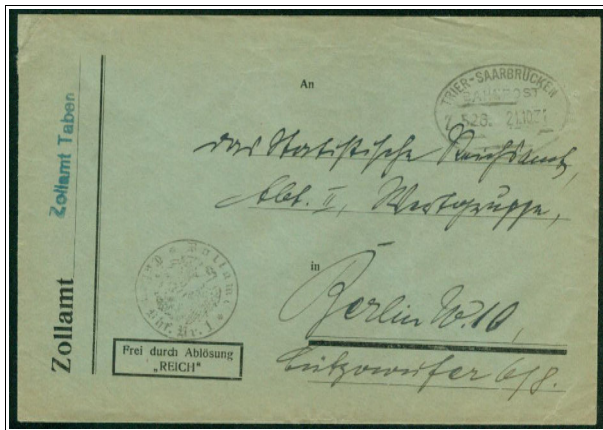 Zollamt Zollamt Taben
An
TRIER-SAARBRÜCKEN
BAHNPOST
das Statistische Reichsamt,
Abt. II, Wertgruppe,
in
Berlin W. 10,
Lützowufer 6/8.
Zollamt
Nr. 1
Frei durch Ablösung
„REICH“